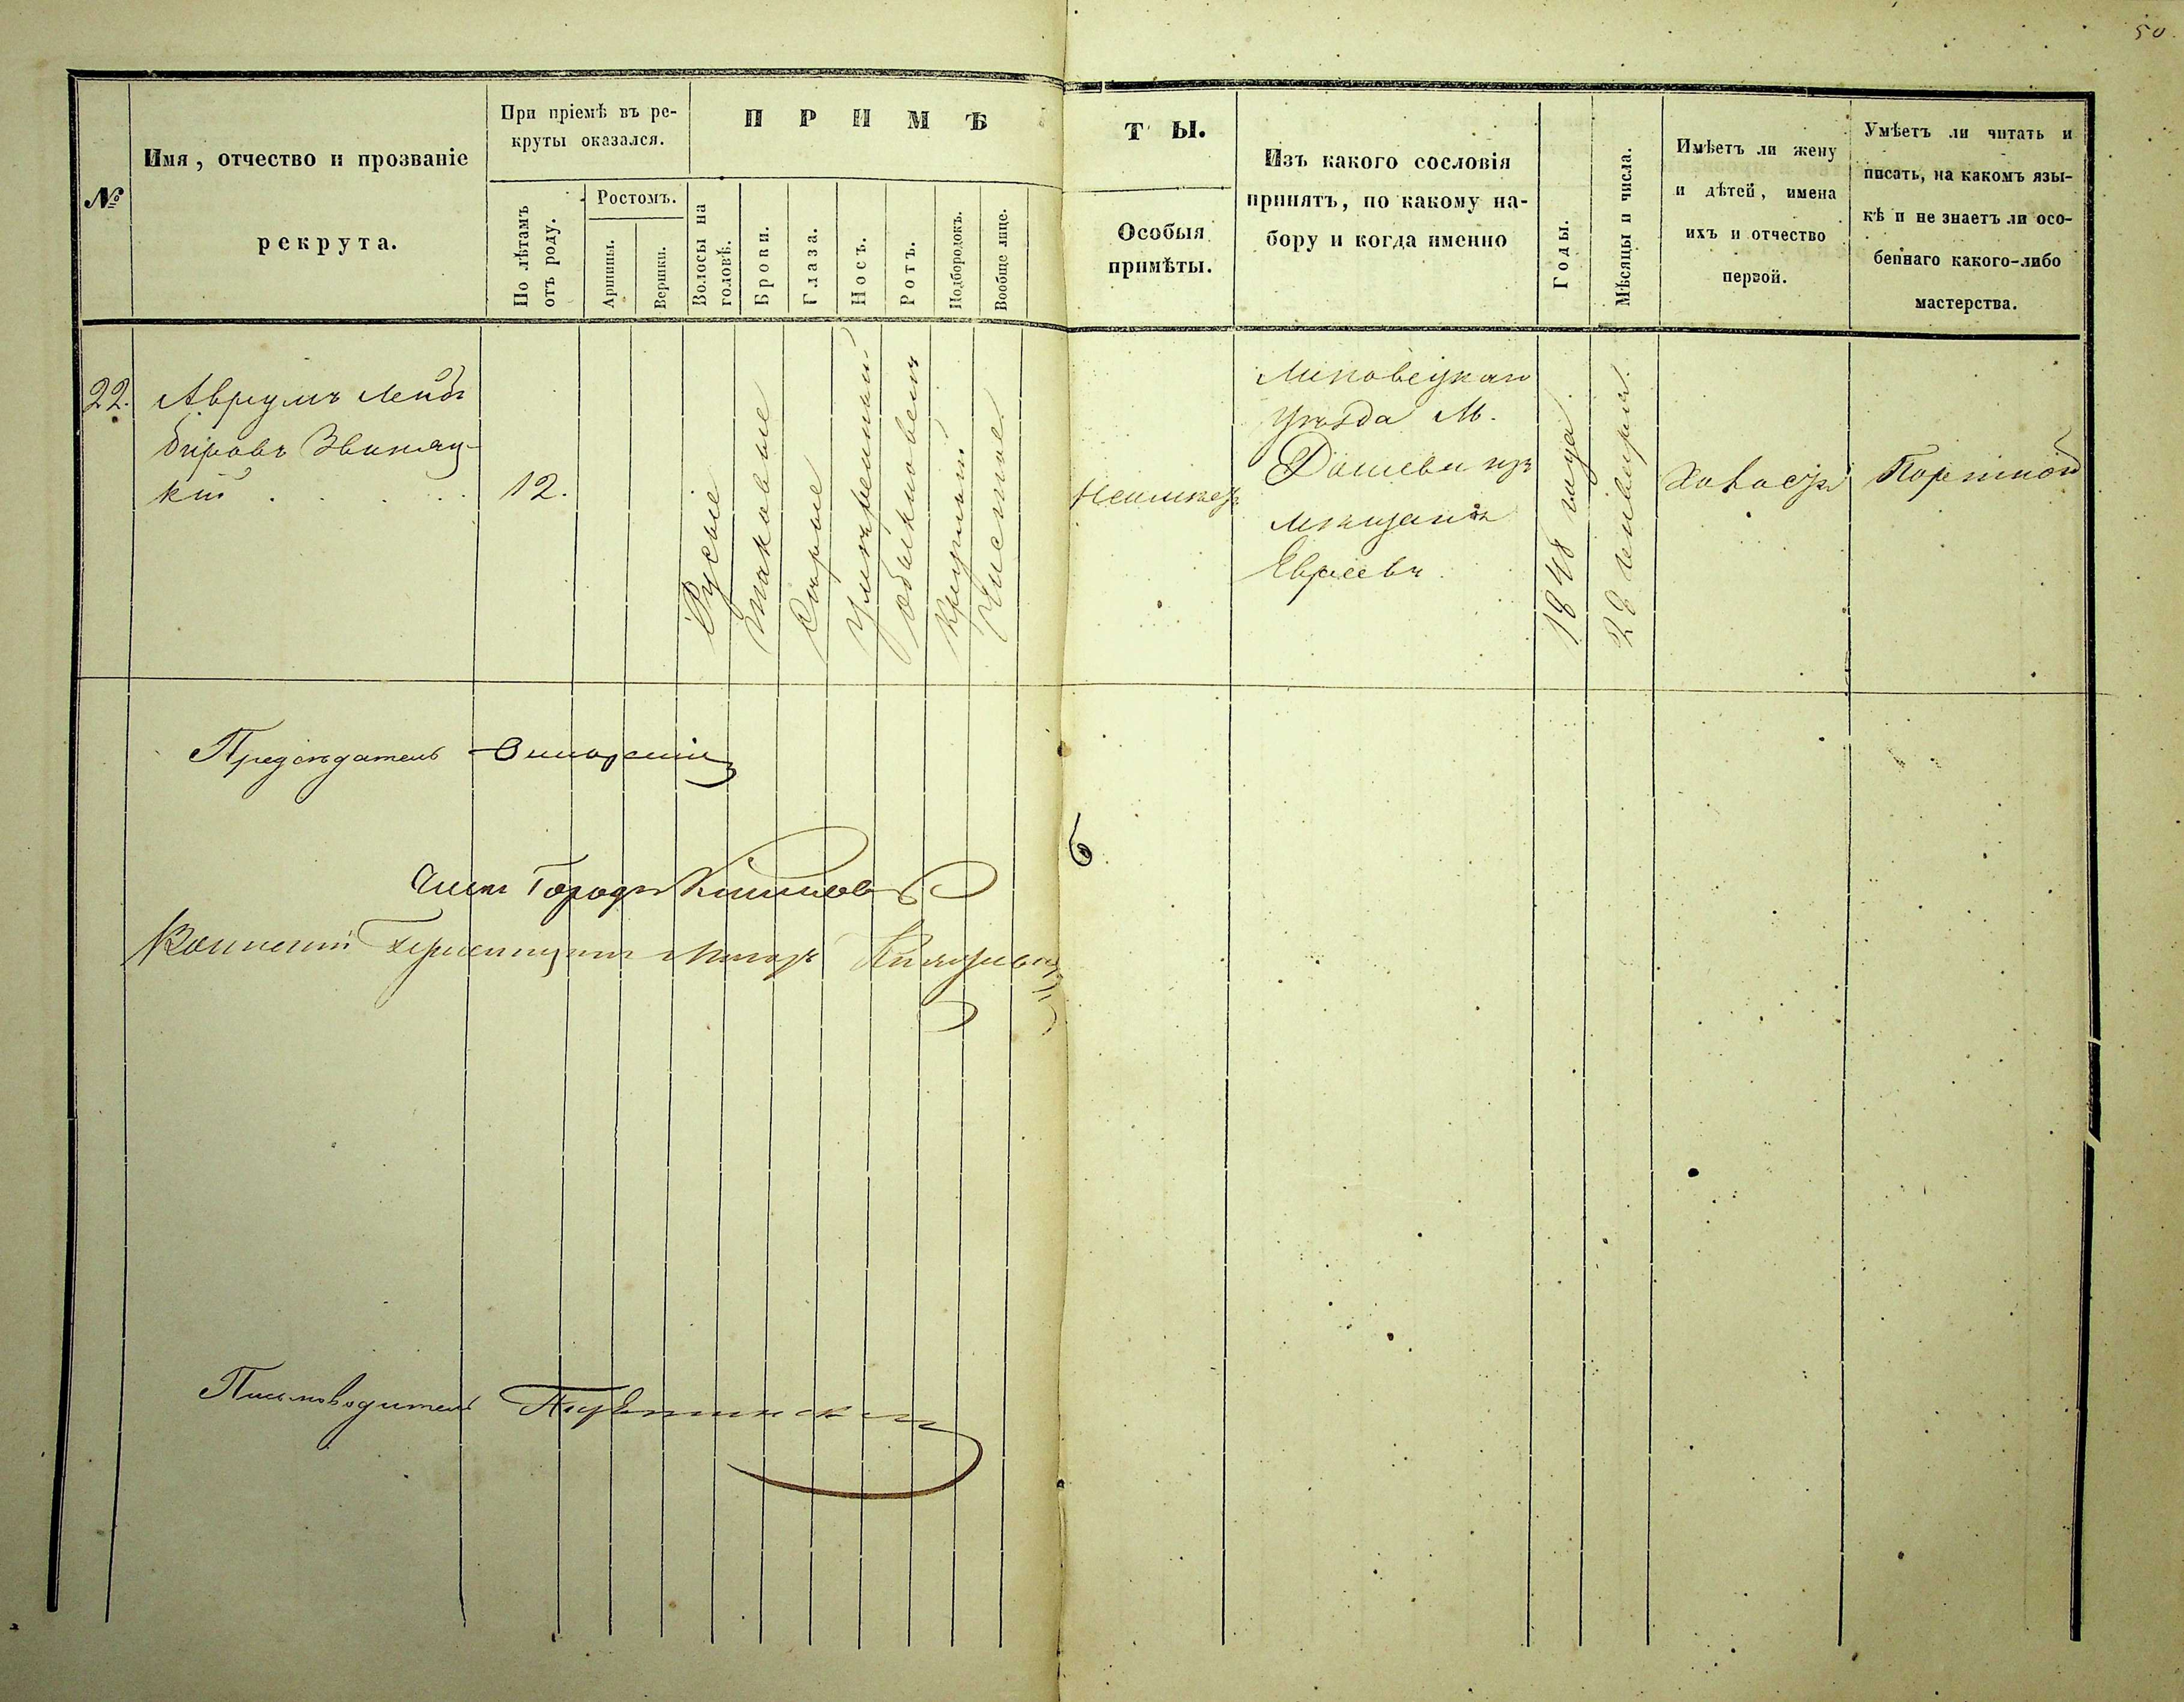 50
№
Имя, отчество и прозваніе
рекрута.
При пріемѣ въ ре-
круты оказался.
По лѣтамъ
отъ роду.
Ростомъ.
Аршины.
Вершки.
П Р И М Ѣ
Волосы на
головѣ.
Брови.
Глаза.
Носъ.
Ротъ.
Подбородокъ.
Вообще лице.
Т Ы.
Особыя
примѣты.
Изъ какого сословія
принятъ, по какому на-
бору и когда именно
Годы.
Мѣсяцы и числа.
Имѣетъ ли жену
и дѣтей, имена
ихъ и отчество
первой.
Умѣетъ ли читать и
писать, на какомъ язы-
кѣ и не знаетъ ли осо-
беннаго какого-либо
мастерства.
22.
Аврумъ Лейб
кій
12.
Русые
таковые
Сѣрые
умѣренный
обыкновенъ
круглый
Чистое
Неимѣетъ
Липовецкаго
уѣзда М.
Дашева изъ
мѣщанъ
Евреевъ
1848 года
28 генваря.
Холостъ
Портной
Предсѣдатель
Членъ Город
Военный Пріемщикъ Маіоръ
Письмоводитель